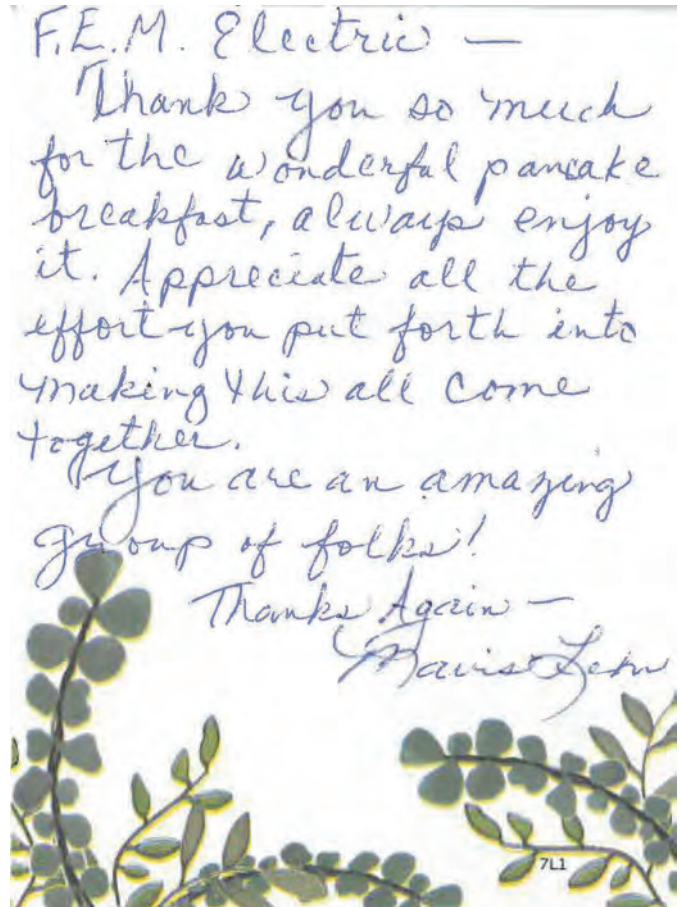 F.E.M. Electric —
Thank you so much
for the wonderful pancake
breakfast, always enjoy
it. Appreciate all the
effort you put forth into
making this all come
together.
You are an amazing
group of folks!
Thanks Again —
Mavis
7L1